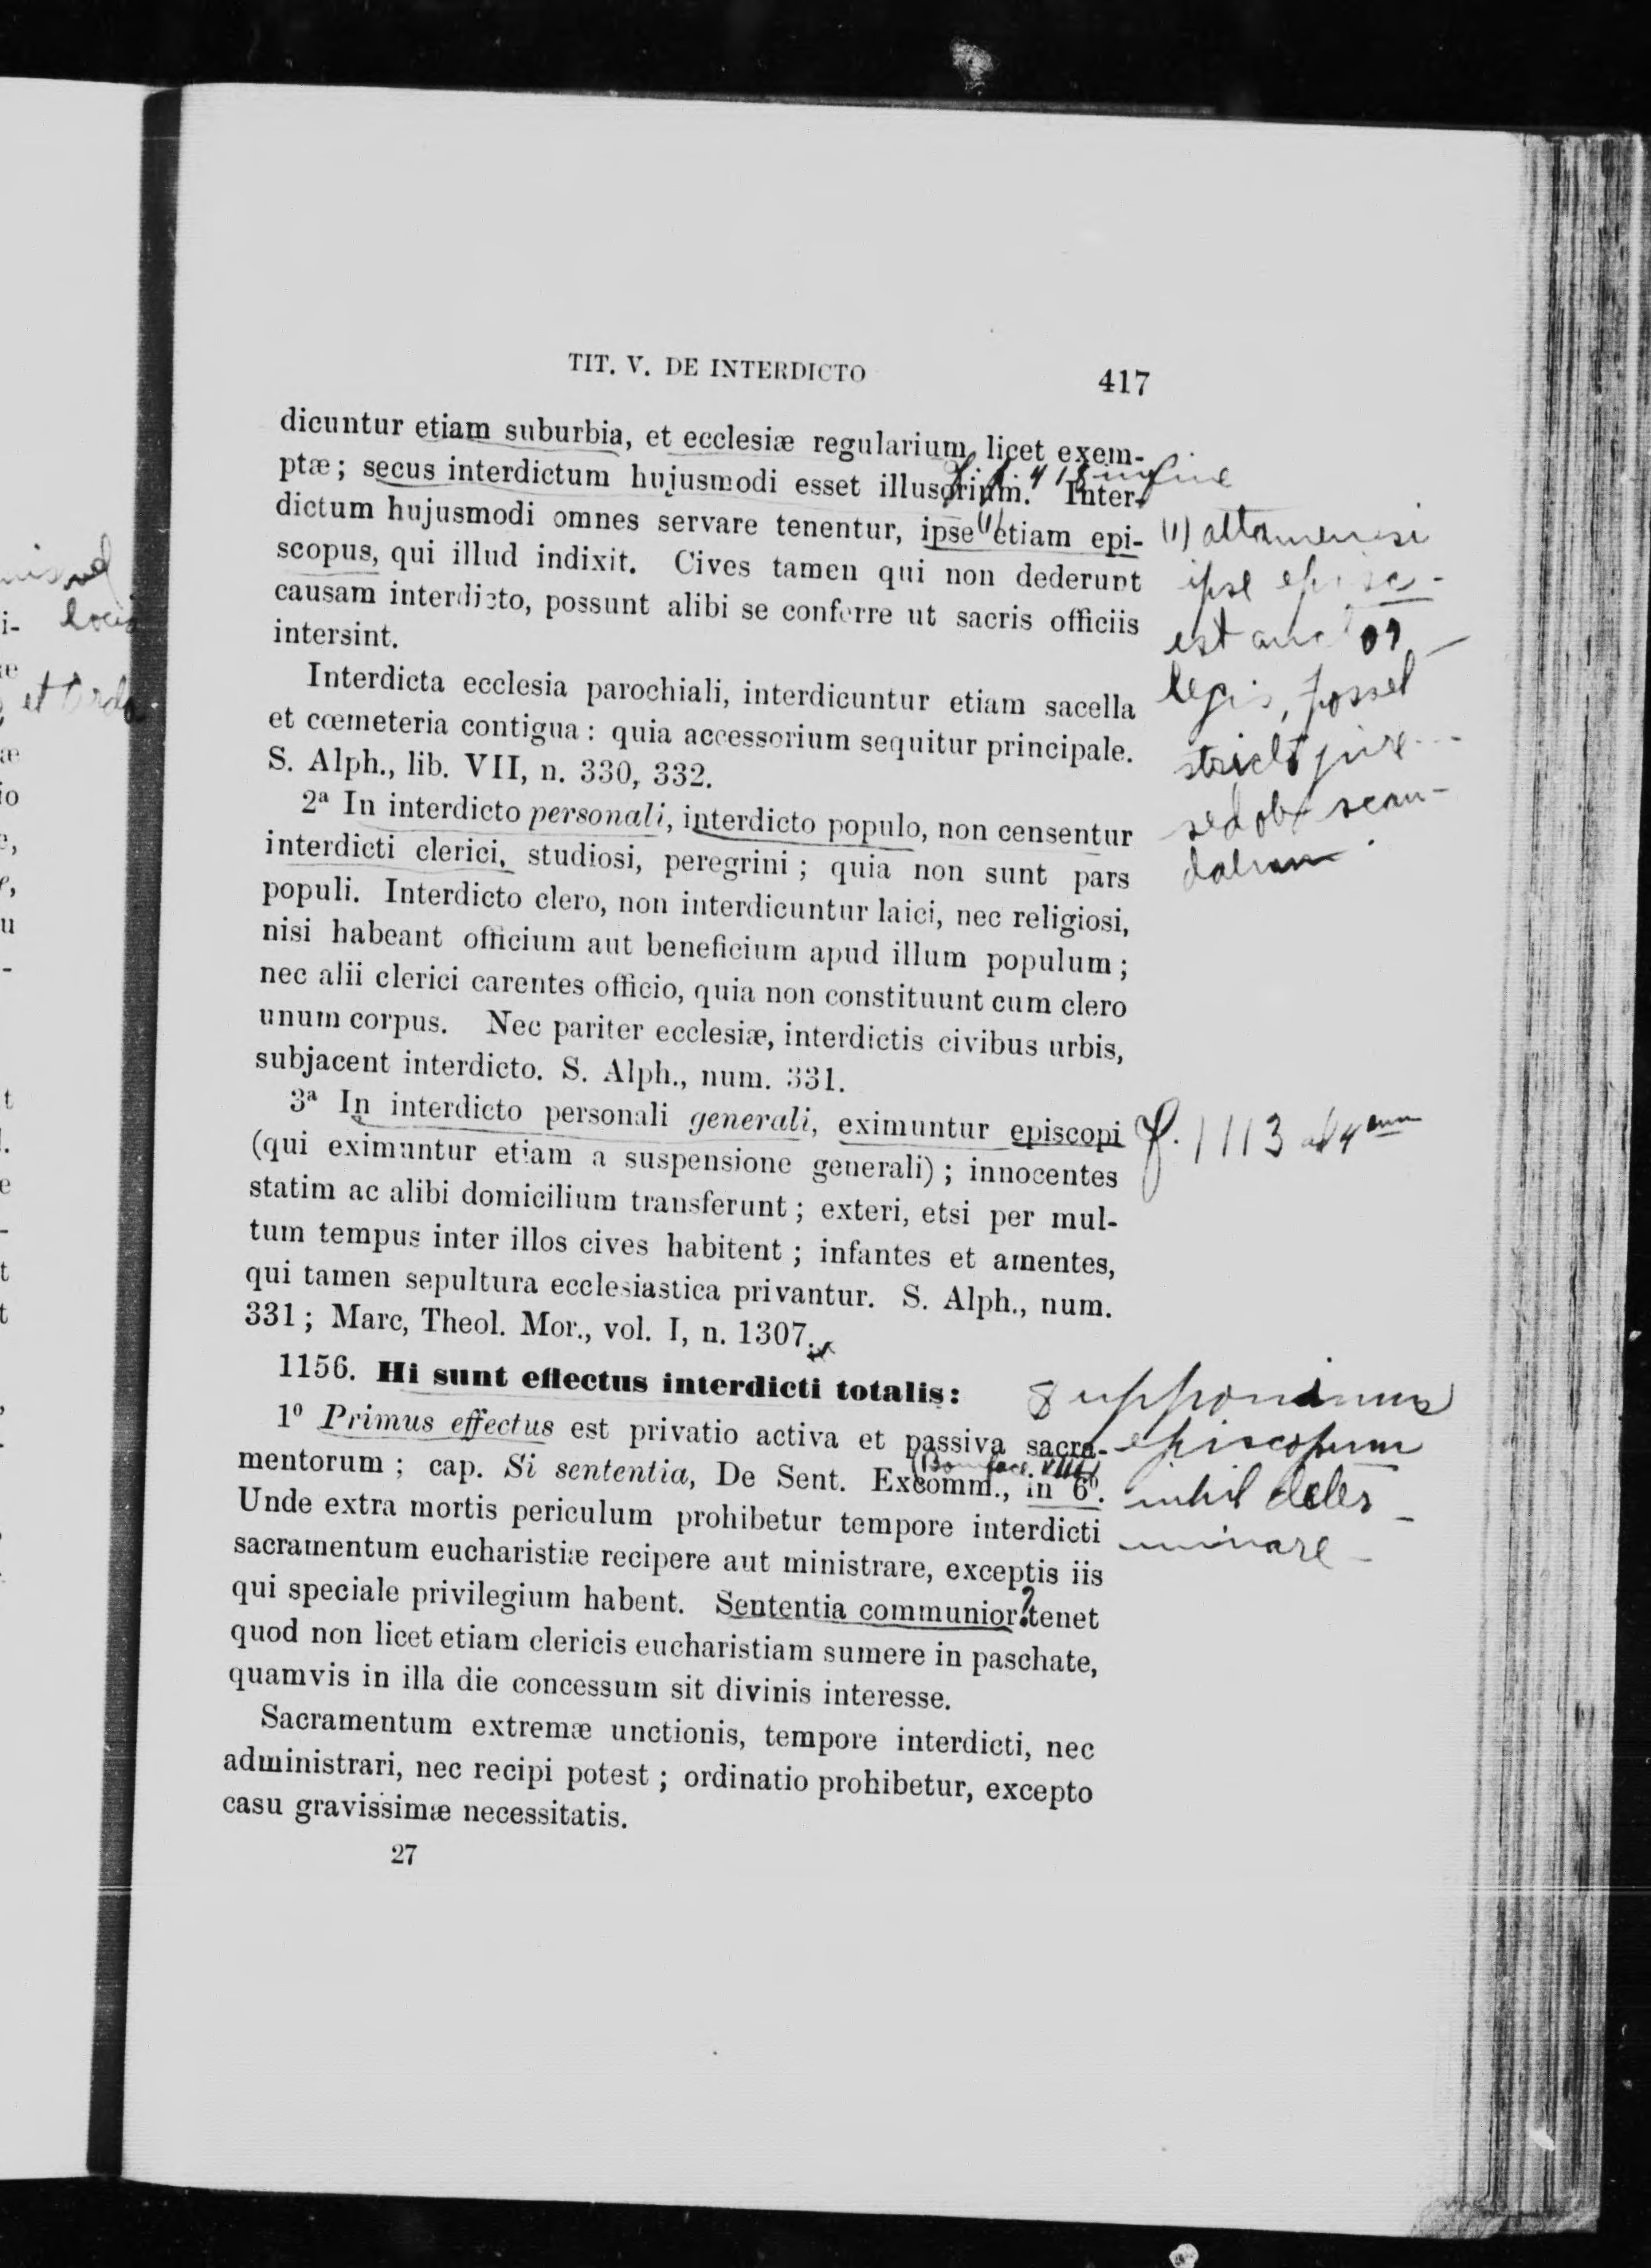 TIT. V. DE INTERDICTO 417
dicuntur etiam suburbia, et ecclesiæ regularium, licet exem-
ptæ; secus interdictum hujusmodi esset illusorium. Inter-
p. 418 in fine
dictum hujusmodi omnes servare tenentur, ipse (1) etiam epi-
scopus, qui illud indixit. Cives tamen qui non dederunt
causam interdicto, possunt alibi se conferre ut sacris officiis
intersint.
(1) attamen si
ipse episc-
est auctor
legis, posset
stricto jure
sed ob scan-
dalum
Interdicta ecclesia parochiali, interdicuntur etiam sacella
et cœmeteria contigua: quia accessorium sequitur principale.
S. Alph., lib. VII, n. 330, 332.
2ª In interdicto personali, interdicto populo, non censentur
interdicti clerici, studiosi, peregrini; quia non sunt pars
populi. Interdicto clero, non interdicuntur laici, nec religiosi,
nisi habeant officium aut beneficium apud illum populum;
nec alii clerici carentes officio, quia non constituunt cum clero
unum corpus. Nec pariter ecclesiæ, interdictis civibus urbis,
subjacent interdicto. S. Alph., num. 331.
3ª In interdicto personali generali, eximuntur episcopi
f. 1113 ad 4um
(qui eximuntur etiam a suspensione generali); innocentes
statim ac alibi domicilium transferunt; exteri, etsi per mul-
tum tempus inter illos cives habitent; infantes et amentes,
qui tamen sepultura ecclesiastica privantur. S. Alph., num.
331; Marc, Theol. Mor., vol. I, n. 1307.
1156. Hi sunt effectus interdicti totalis:
1º Primus effectus est privatio activa et passiva sacra-
(Boniface VIII)
mentorum; cap. Si sententia, De Sent. Excomm., in 6º.
Unde extra mortis periculum prohibetur tempore interdicti
sacramentum eucharistiæ recipere aut ministrare, exceptis iis
qui speciale privilegium habent. Sententia communior ? tenet
quod non licet etiam clericis eucharistiam sumere in paschate,
quamvis in illa die concessum sit divinis interesse.
supponimus
episcopum
nihil deter-
minare
Sacramentum extremæ unctionis, tempore interdicti, nec
administrari, nec recipi potest; ordinatio prohibetur, excepto
casu gravissimæ necessitatis.
27